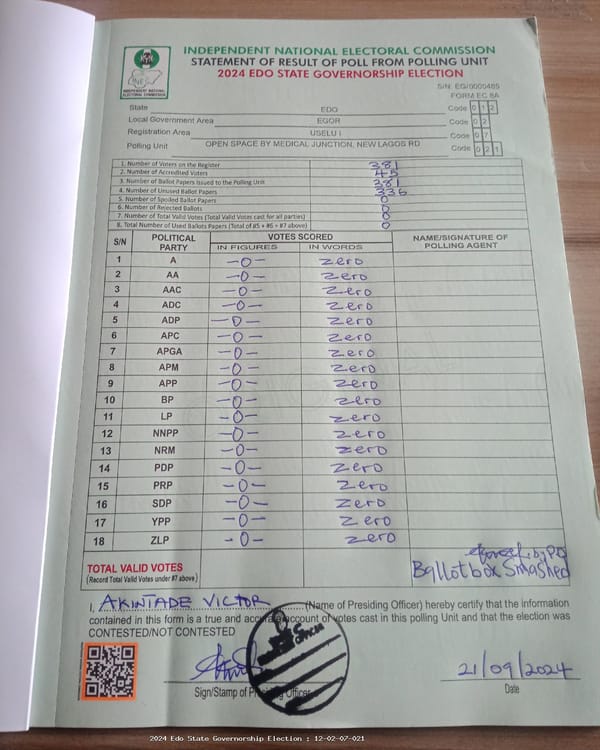 INDEPENDENT NATIONAL ELECTORAL COMMISSION
STATEMENT OF RESULT OF POLL FROM POLLING UNIT
2024 EDO STATE GOVERNORSHIP ELECTION
INDEPENDENT NATIONAL ELECTORAL COMMISSION
S/N: EG/0000485
FORM EC 8A
State EDO Code 0 1 2
Local Government Area EGOR Code 0 2
Registration Area USELU I Code 0 7
Polling Unit OPEN SPACE BY MEDICAL JUNCTION, NEW LAGOS RD Code 0 2 1
1. Number of Voters on the Register 381
2. Number of Accredited Voters 45
3. Number of Ballot Papers Issued to the Polling Unit 381
4. Number of Unused Ballot Papers 336
5. Number of Spoiled Ballot Papers 0
6. Number of Rejected Ballots 0
7. Number of Total Valid Votes (Total Valid Votes cast for all parties) 0
8. Total Number of Used Ballots Papers (Total of #5 + #6 + #7 above) 0
S/N POLITICAL PARTY VOTES SCORED NAME/SIGNATURE OF POLLING AGENT
IN FIGURES IN WORDS
1 A -0- zero
2 AA -0- zero
3 AAC -0- zero
4 ADC -0- zero
5 ADP -0- zero
6 APC -0- zero
7 APGA -0- zero
8 APM -0- zero
9 APP -0- zero
10 BP -0- zero
11 LP -0- zero
12 NNPP -0- zero
13 NRM -0- zero
14 PDP -0- zero
15 PRP -0- zero
16 SDP -0- zero
17 YPP -0- zero
18 ZLP -0- zero
TOTAL VALID VOTES
(Record Total Valid Votes under #7 above)
Ballot box Smashed
I, AKINTADE VICTOR (Name of Presiding Officer) hereby certify that the information
contained in this form is a true and accurate account of votes cast in this polling Unit and that the election was
CONTESTED/NOT CONTESTED
21/09/2024
Sign/Stamp of Presiding Officer Date
2024 Edo State Governorship Election : 12-02-07-021